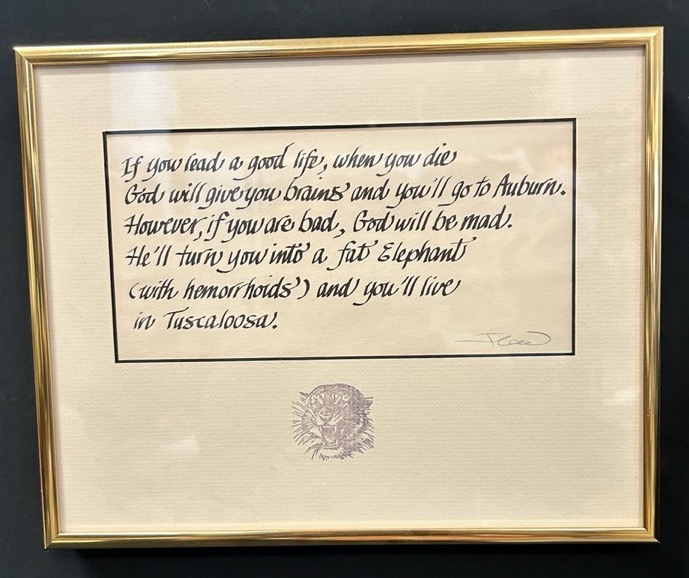 If you lead a good life, when you die
God will give you brains and you'll go to Auburn.
However, if you are bad, God will be mad.
He'll turn you into a fat Elephant
(with hemorrhoids) and you'll live
in Tuscaloosa.